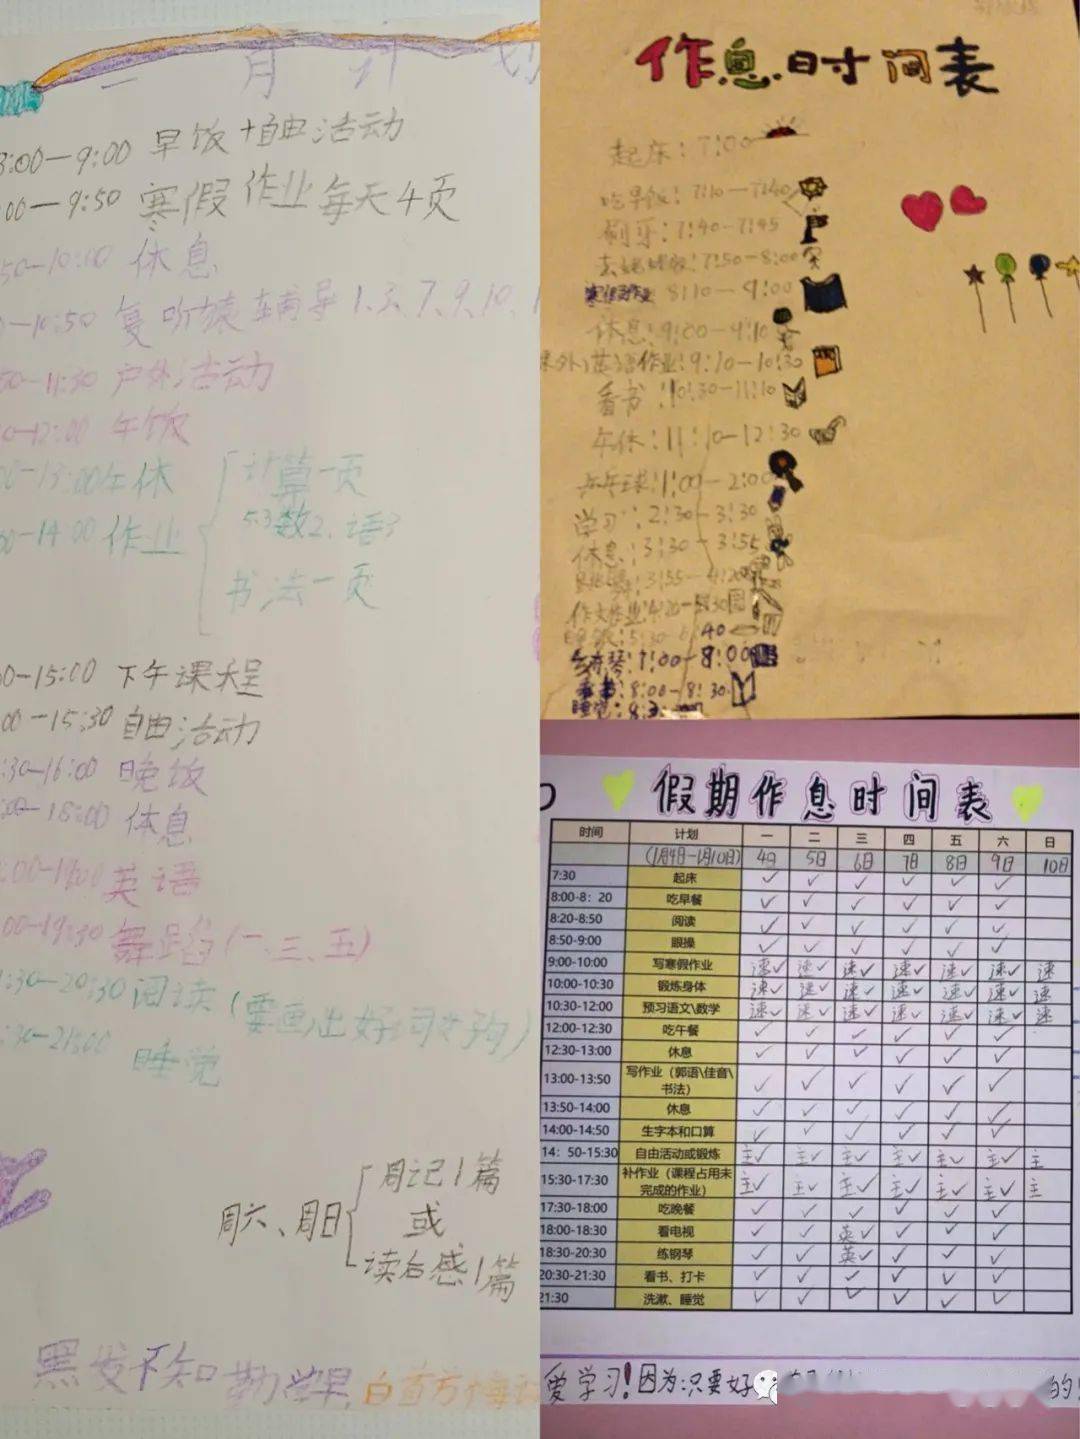 一月计划
8:00—9:00 早饭+自由活动
00—9:50 寒假作业每天4页
50—10:00 休息
10:50 复听猿辅导1、3、7、9、10、1
11:30 户外活动
12:00 午饭
13:00 午休
计算一页
14:00 作业
53数2、语3
书法一页
00-15:00 下午课程
00—15:30 自由活动
:30—16:00 晚饭
:00—18:00 休息
:00-19:00 英语
00-19:30 舞蹈(一、三、五)
:30—20:30 阅读(要画出好词好句)
:30—21:00 睡觉
周六、周日
周记1篇
或
读后感1篇
黑发不知勤学早,白首方悔
作息时间表
起床:7:00
吃早饭:7:10—7:40
刷牙:7:40-7:45
7:50-8:00
寒假作业 8:10-9:00
休息:9:00-9:10
课外英语作业:9:10-10:30
看书:10:30-11:10
午休:11:10-12:30
乒乓球:1:00-2:00
学习:2:30-3:30
休息:3:30-3:55
3:55-4:20
作文作业:4:20-5:30
晚饭:5:30-6:40
7:00-8:00
看书:8:00-8:30
睡觉:8:3
假期作息时间表
时间 计划 一 二 三 四 五 六 日
(1月4日-1月10日) 4日 5日 6日 7日 8日 9日 10日
7:30 起床 ✓ ✓ ✓ ✓ ✓ ✓
8:00-8:20 吃早餐 ✓ ✓ ✓ ✓ ✓ ✓
8:20-8:50 阅读 ✓ ✓ ✓ ✓ ✓ ✓
8:50-9:00 眼操 ✓ ✓ ✓ ✓ ✓ ✓
9:00-10:00 写寒假作业 速✓ 速✓ 速✓ 速✓ 速✓ 速✓ 速
10:00-10:30 锻炼身体 速✓ 速✓ 速✓ 速✓ 速✓ 速✓ 速
10:30-12:00 预习语文\数学 速✓ 速✓ 速✓ 速✓ 速✓ 速✓ 速
12:00-12:30 吃午餐 ✓ ✓ ✓ ✓ ✓ ✓
12:30-13:00 休息 ✓ ✓ ✓ ✓ ✓ ✓
13:00-13:50 写作业（郭语\佳音\书法） ✓ ✓ ✓ ✓ ✓ ✓
13:50-14:00 休息 ✓ ✓ ✓ ✓ ✓ ✓
14:00-14:50 生字本和口算 ✓ ✓ ✓ ✓ ✓ ✓
14：50-15:30 自由活动或锻炼 主✓ 主✓ 主✓ 主✓ 主✓ 主✓ 主
15:30-17:30 补作业（课程占用未完成的作业） 主✓ 主✓ 主✓ 主✓ 主✓ 主✓ 主
17:30-18:00 吃晚餐 ✓ ✓ ✓ ✓ ✓ ✓
18:00-18:30 看电视 ✓ ✓ 英✓ ✓ ✓ ✓
18:30-20:30 练钢琴 ✓ ✓ 英✓ ✓ ✓ ✓
20:30-21:30 看书、打卡 ✓ ✓ ✓ ✓ ✓ ✓
21:30 洗漱、睡觉 ✓ ✓ ✓ ✓ ✓ ✓
爱学习!因为只要好 的!